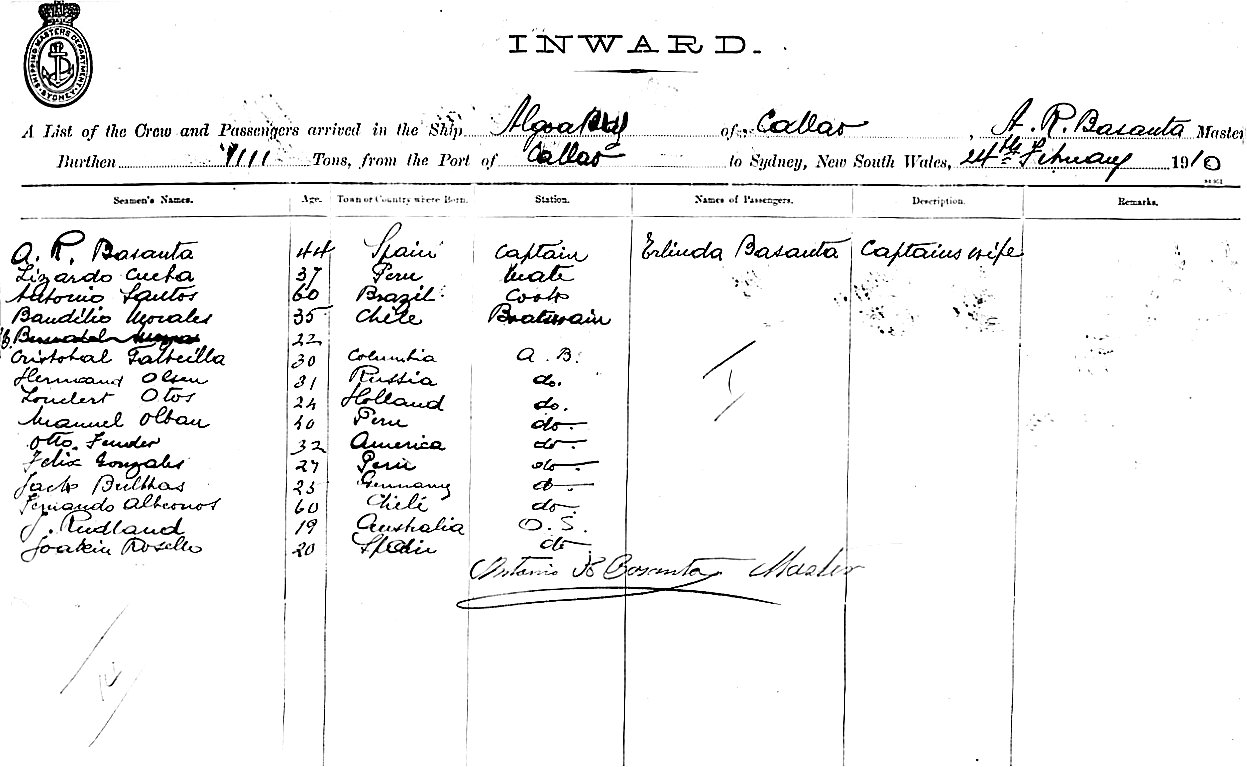 SHIPPING MASTERS DEPARTMENT SYDNEY
INWARD.
A List of the Crew and Passengers arrived in the Ship Algoa Bay of Callao, A. R. Basanta Master
Burthen 1111 Tons, from the Port of Callao to Sydney, New South Wales, 24th February 1910
Seamen's Names. Age. Town or Country where Born. Station. Names of Passengers. Description. Remarks.
A. R. Basanta 44 Spain Captain Erlinda Basanta Captains wife
Lizardo 37 Peru Mate
Antonio Santos 60 Brazil Cook
Baudilio Morales 35 Chile
22
Cristobal 30 Columbia A.B.
Hermand Olsen 31 Russia do.
Otos 24 Holland do.
Manuel Olban 40 Peru do
Otto 32 America do
Felix Gonzales 27 Peru do
Jack 25 Germany do
Fernando 60 Chile do
J. Rudland 19 Australia O.S.
Joakin Rosello 20 Spain do
Antonio R Basanta Master